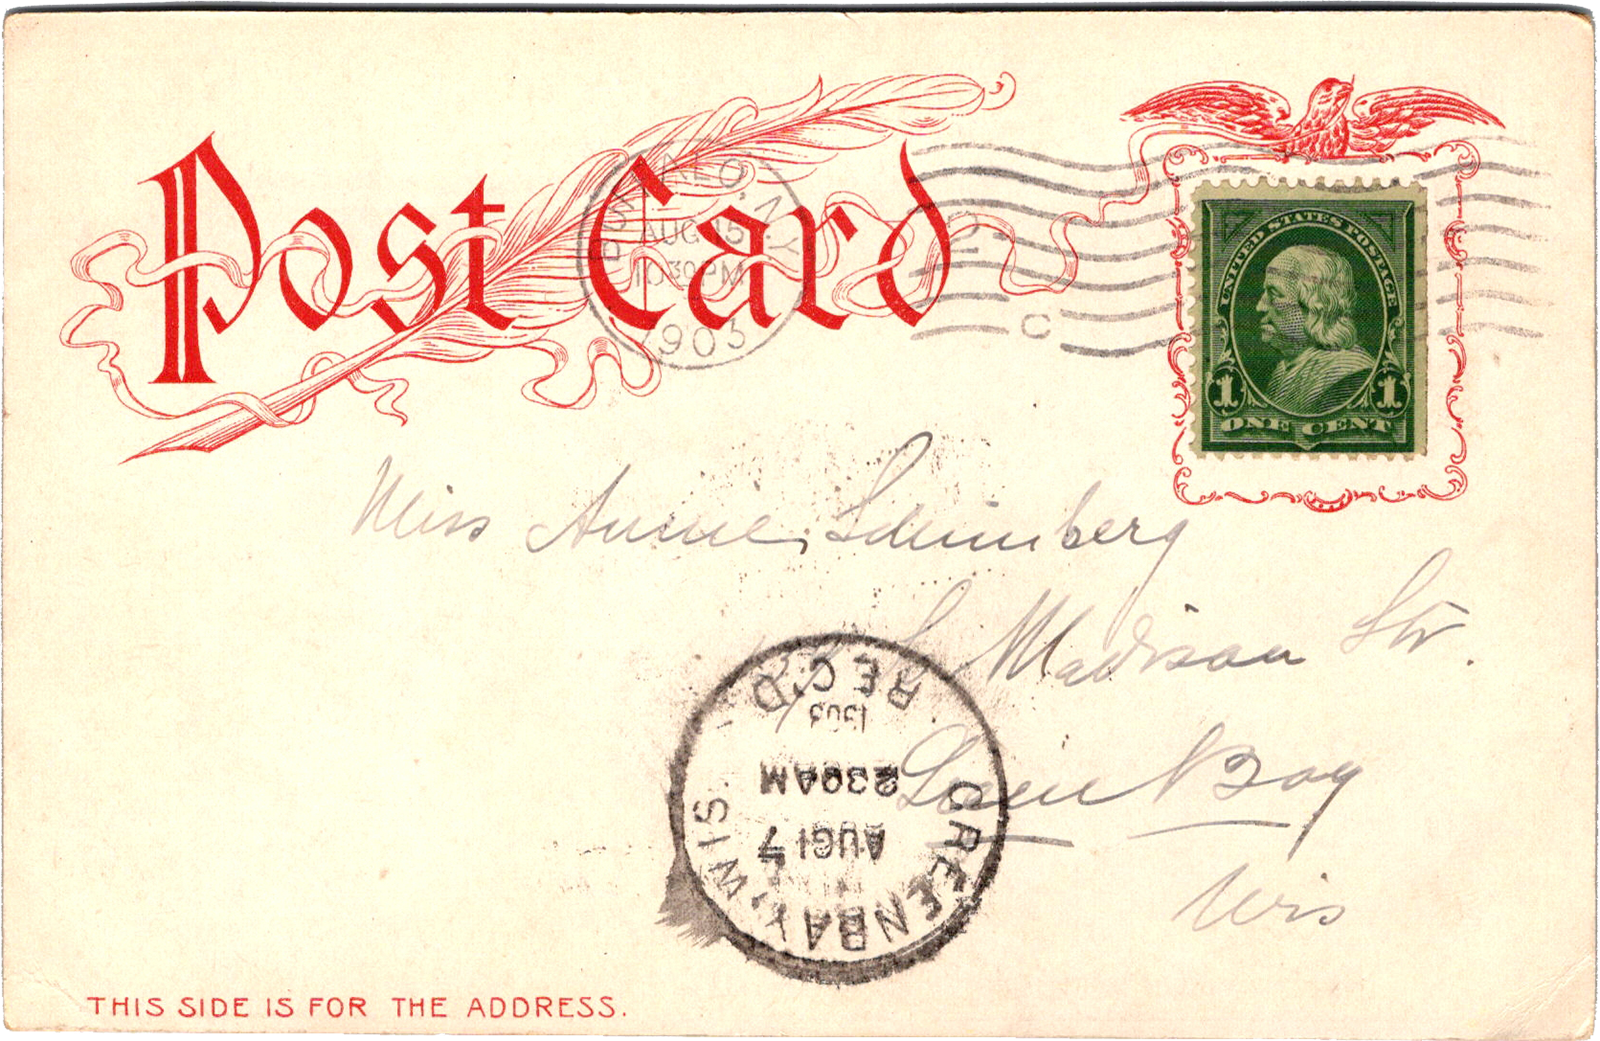 Post Card
BUFFALO, N.Y.
AUG 15
10 30 PM
1903
C
UNITED STATES POSTAGE
1 1
ONE CENT
Miss Annie
S. Madison Str.
Green Bay
Wis
GREEN BAY, WIS.
AUG 17
230 AM
1903
REC'D
THIS SIDE IS FOR THE ADDRESS.